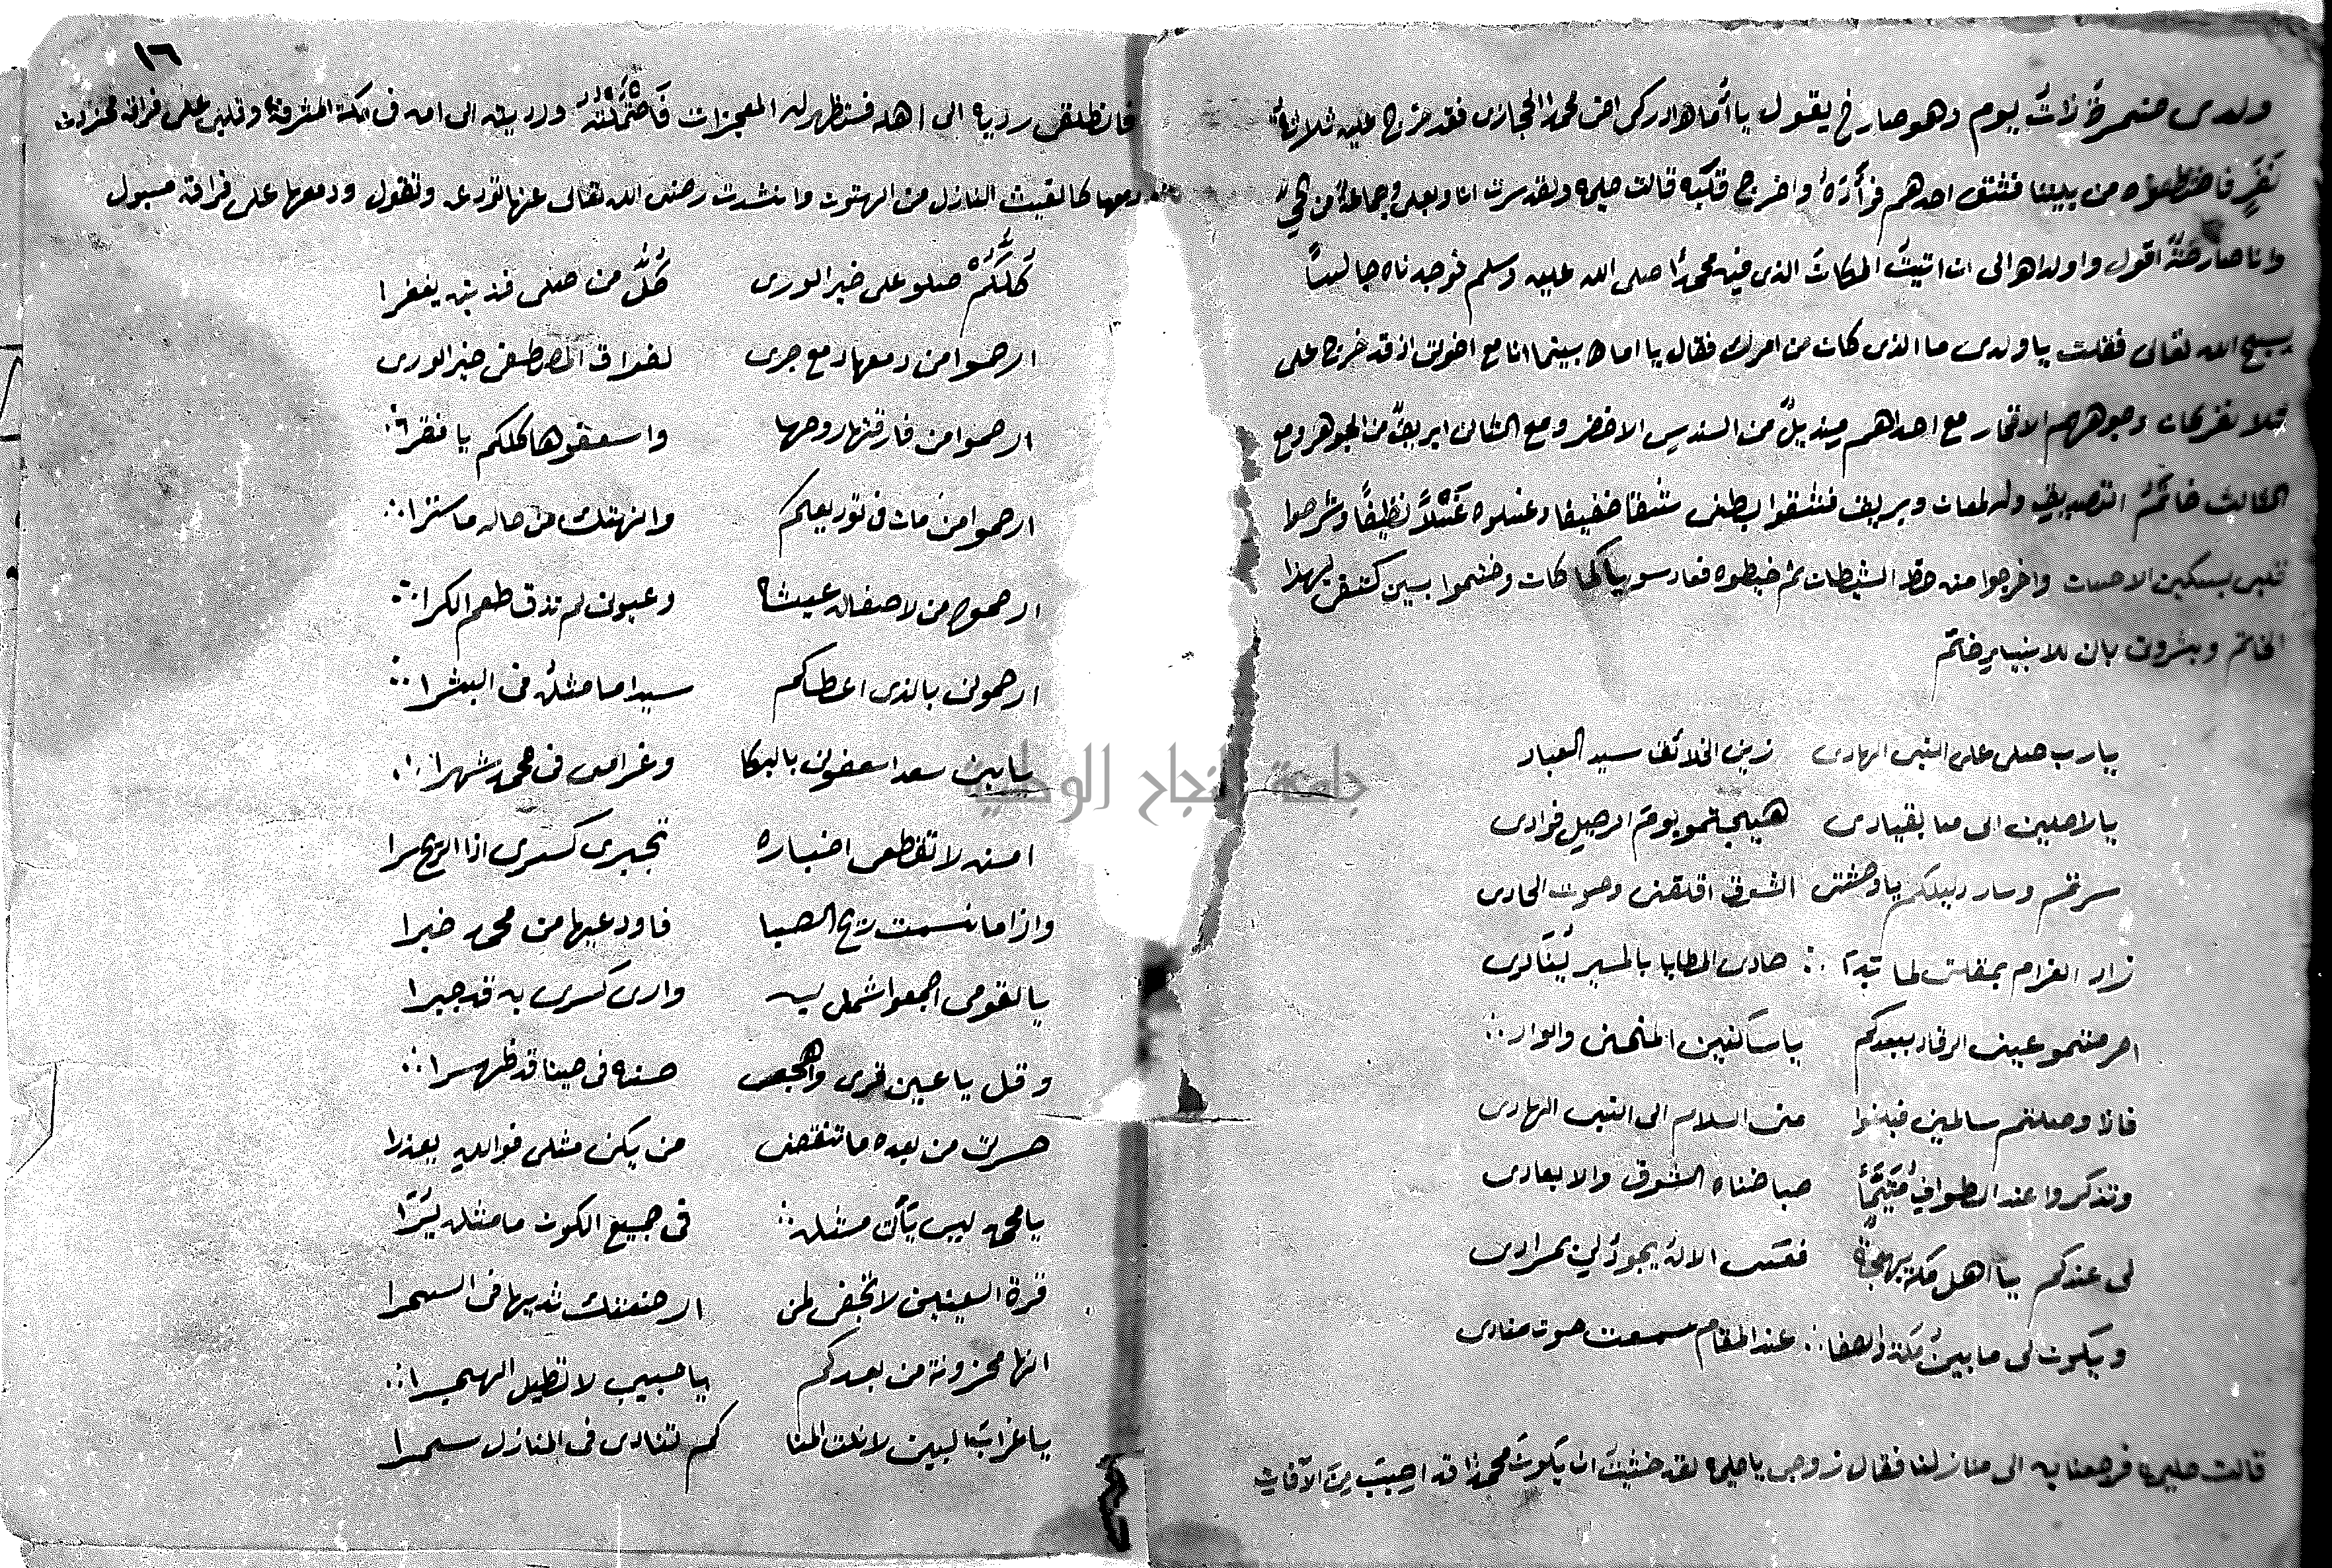 ولدى ضمرة ذات يوم وهو صارخ يقول يا أماه ادركى اخى محمدا الحجازى فقد خرج عليه ثلاثة
نفر فاختطعوه من بيننا فشق احدهم فؤاده واخرج قلبه قالت حليمه ولقد سرت انا وبعلى وجماعة من الحي
وانا صارخة اقول واولداه الى ان اتيت المكان الذى فيه محمدا صلى الله عليه وسلم فوجدناه جالسا
يسبح الله تعالى فقلت يا ولدى ما الذى كان من امرك فقال يا اماه بينما انا مع اخوتى اذ قد خرج على
ثلاثة نفر كان وجوههم الاقمار مع احداهم منديل من السندس الاخضر ومع الثانى ابريق من الجوهر ومع
الثالث خاتم التصديق وله لمعان وبريق فشقوا بطنى شقا خفيفا وغسلوه غسلا نظيفا وشرحوا
قلبى بسكين الاحسان واخرجوا منه حظ الشيطان ثم خيطوه فعاد سويا كما كان وختموا بين كتفى بهذا
الخاتم وبشرونى بان للانبياء ختم
يا رب صلى على النبى الهادى زين الخلائق سيد العباد
يا راحلين الى منا بقيادى هيجتموا يوم الرحيل فؤادى
سرتم وسار دليلكم يا وحشتى الشوق اقلقنى وصوت الحادى
زاد الغرام بمقلتى لما بدا حادى المطايا بالمسير ينادى
احرمتموا عينى الرقاد ببعدكم يا ساكنين المنحنى والواد
فاذا وصلتم سالمين فبلغوا منى السلام الى النبى الهادى
وتذكروا عند الطواف متيما صبا ضناه الشوق والابعادى
لى عندكم يا اهل مكة بهجة فعسى الاله يجود لى بمرادى
ويكون لى ما بين مكة والصفا عند المقام سمعت صوت منادى
قالت حليمه فرجعنا به الى منازلنا فقال زوجى يا حليمه لقد خشيت ان يكون محمدا قد اصيب من الآفات
١٦
فانطلقى رديه الى اهله فستظهر له المعجزات فاحتملته ورديته الى امه فى مكة المشرفة وقلبى على فراقه محزون
دمعها كالغيث النازل من الهتون وانشدت رضى الله تعالى عنها تودعه وتقول ودمعها على فراقه مسبول
كلكم صلو على خير الورى كل من صلى فذنبه يغفرا
ارحموا من دمعها دمع جرى لفراق المصطفى خير الورى
ارحموا من فارقتها روحها واسعفوها كلكم يا فقرا
ارحموا من مات فى توديعكم وانهتك من حاله ما سترا
ارحموا من لا صفا له عيشا وعيونى لم تذق طعم الكرا
ارحمونى بالذى اعطاكم سيدا ما مثله فى البشرا
يا بنى سعد اسعفونى بالبكا وغرامى فى محمد شهرا
امنه لا تقطعى اخباره تجبرى كسرى اذا الريح سرا
واذا ما نسمت ريح الصبا فاودعيها من محمد خبرا
يا لقومى اجمعوا شملى به وارى كسرى به قد جبرا
وقل يا عين قرى واهجعى حسنه فى حينا قد ظهرا
حسرتى من بعده ما تنقضى من يكن مثلى فوالله يعذرا
يا محمد ليس يأتى مثله فى جميع الكون ما مثله يرا
قرة العينين لا تجفى لمن ارضعتك ثديها فى السحرا
انها محزونة من بعدكم يا حبيبى لا تطيل الهجرا
يا غراب البين لا نلت المنا كم تنادى فى المنازل سحرا
جامعة النجاح الوطنية